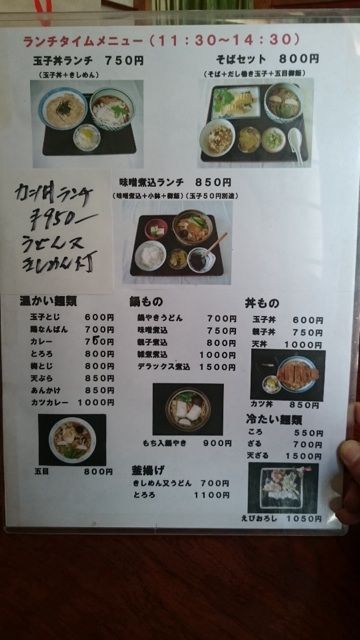 ランチタイムメニュー(11:30〜14:30)
玉子丼ランチ 750円
(玉子丼+きしめん)
そばセット 800円
(そば+だし巻き玉子+五目御飯)
味噌煮込ランチ 850円
(味噌煮込+小鉢+御飯)(玉子50円別途)
カツ丼ランチ
¥950ー
うどん又
きしめん付
温かい麺類
玉子とじ 600円
鶏なんばん 700円
カレー 750円
とろろ 800円
梅とじ 800円
天ぷら 850円
あんかけ 850円
カツカレー 1000円
五目 800円
鍋もの
鍋やきうどん 700円
味噌煮込 750円
親子煮込 800円
雑煮煮込 1000円
デラックス煮込 1500円
もち入鍋やき 900円
釜揚げ
きしめん又うどん 700円
とろろ 1100円
丼もの
玉子丼 600円
親子丼 750円
天丼 1000円
カツ丼 850円
冷たい麺類
ころ 550円
ざる 700円
天ざる 1500円
えびおろし 1050円